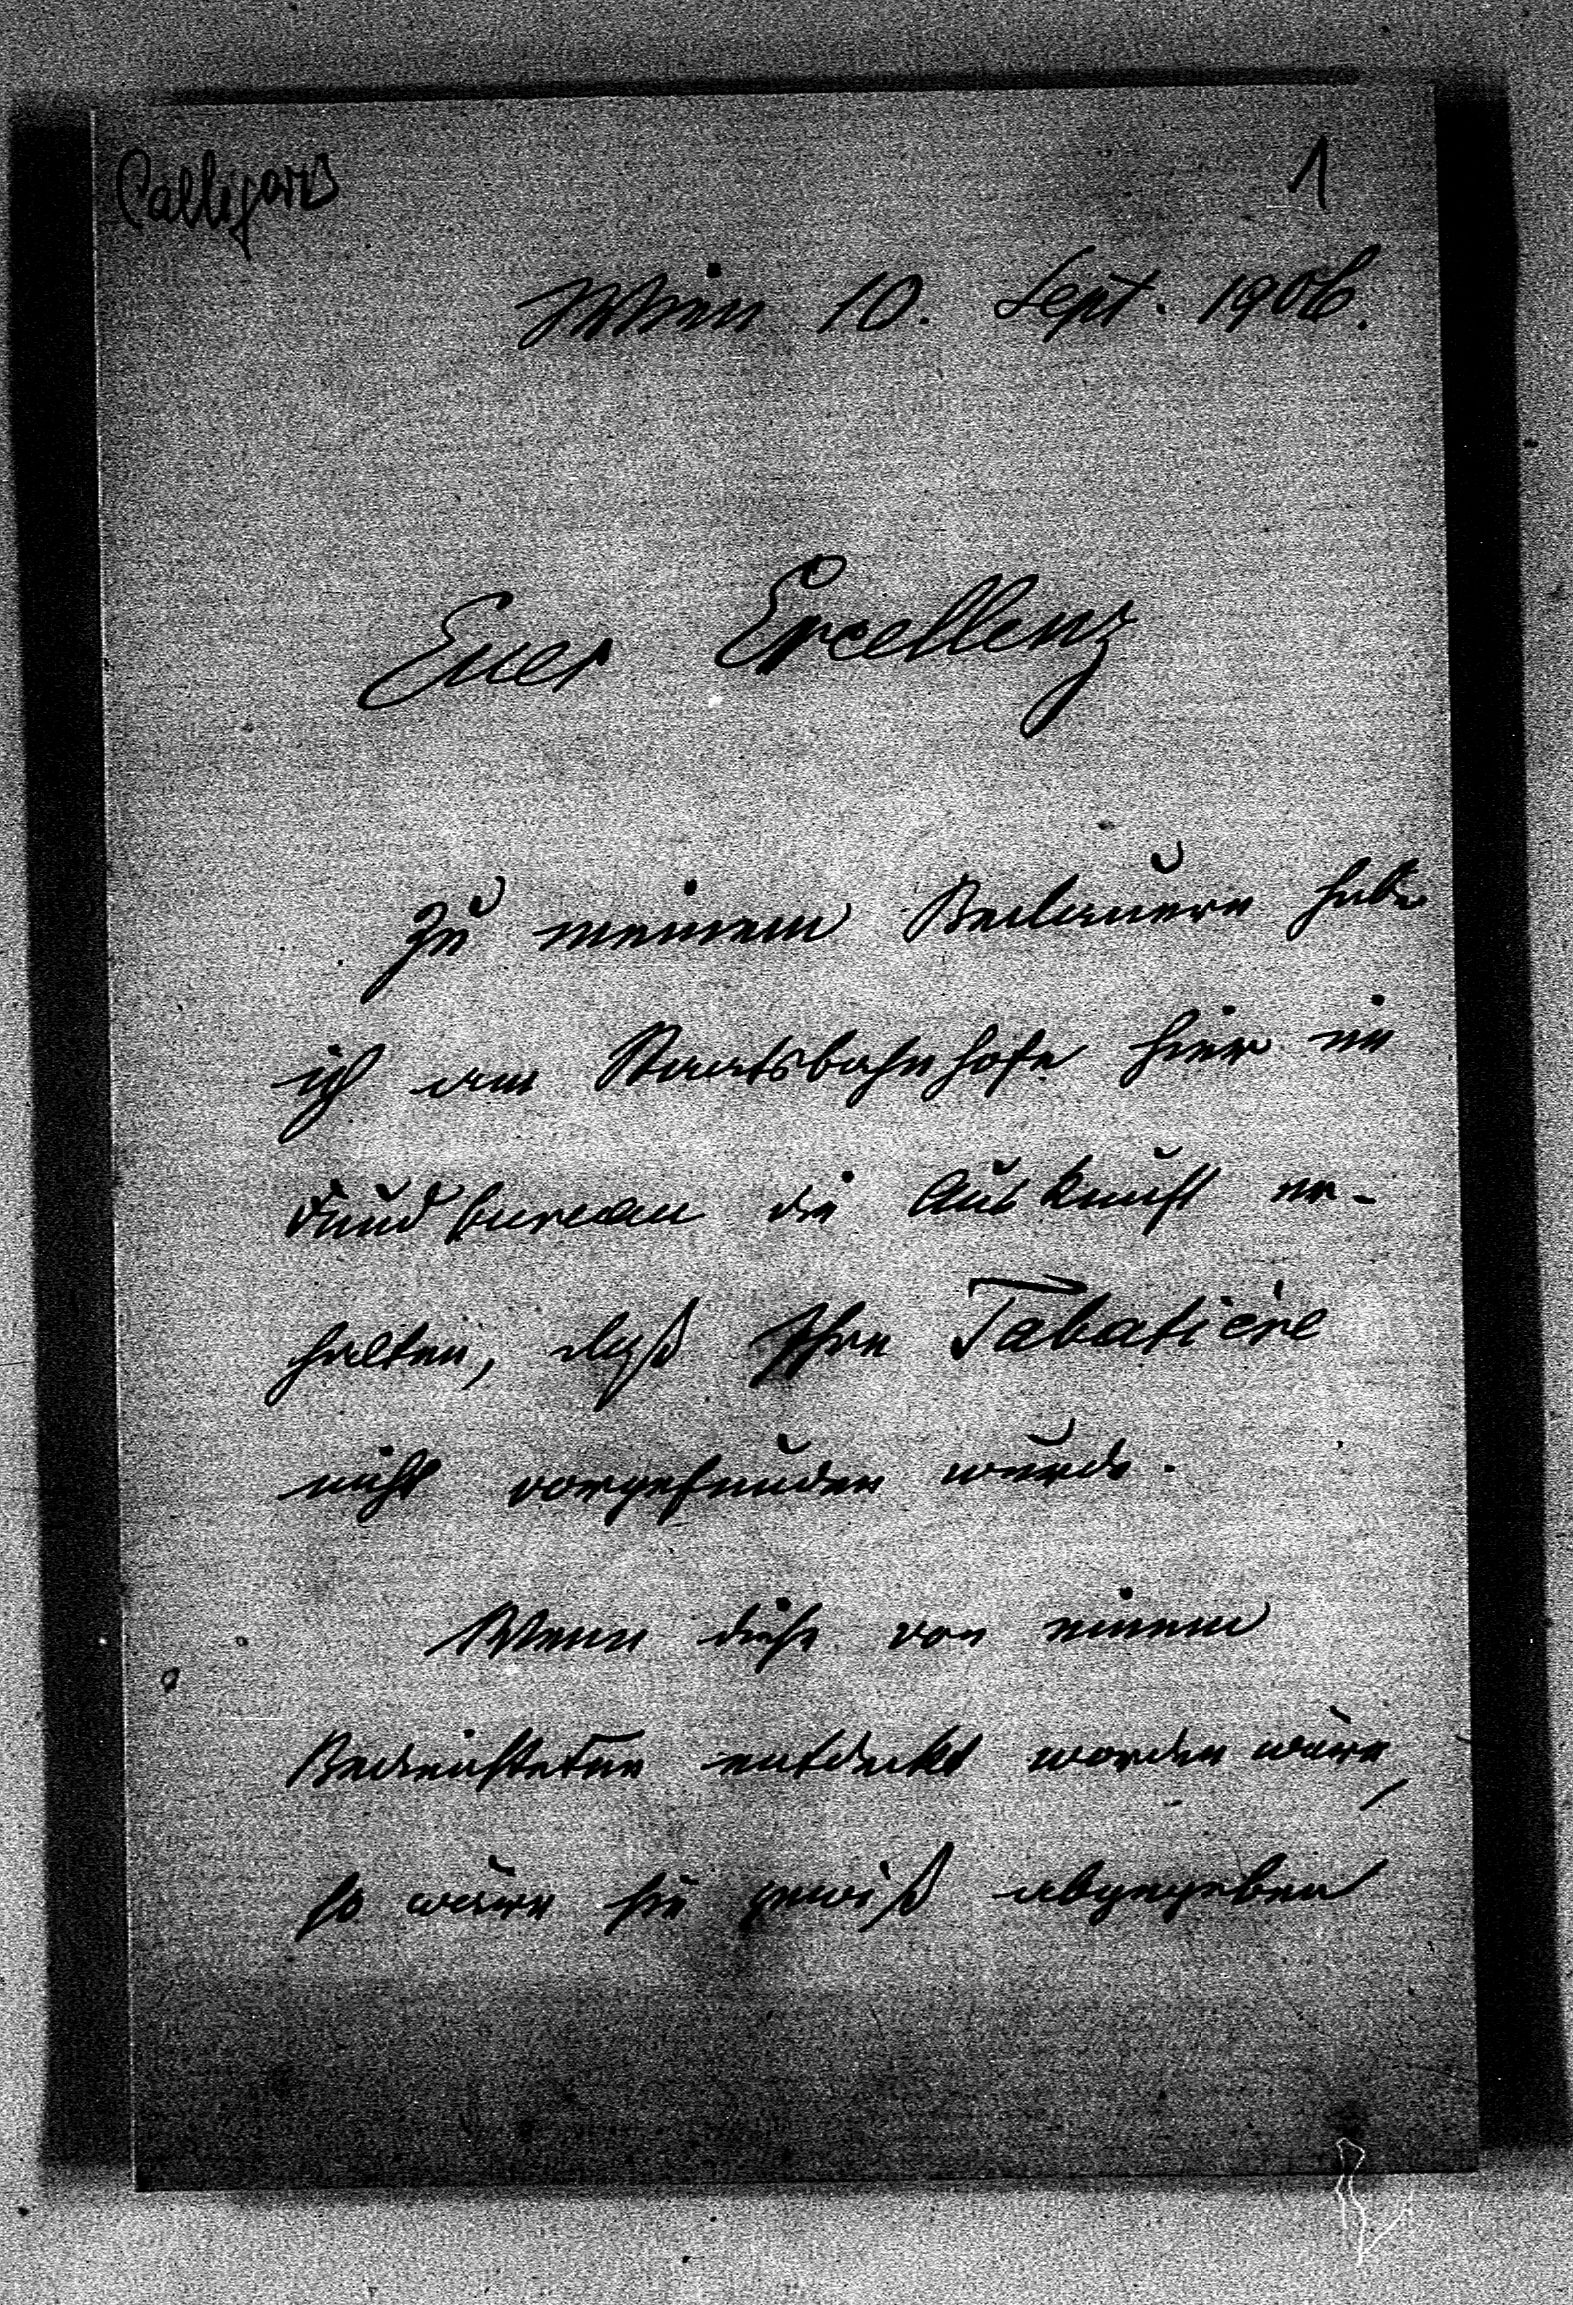 Calligaris
1
Wien 10. Sept. 1906.
Euer Excellenz
Zu meinem Bedauern habe
ich am Staatsbahnhofe hier im
Fundbureau die Auskunft er-
halten, daß Ihre Tabatière
nicht vorgefunden wurde.
Wenn diese von einem
Bediensteten entdeckt worden wäre,
so wäre sie gewiß abgegeben